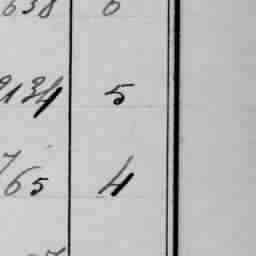 638 0
9134 5
765 4